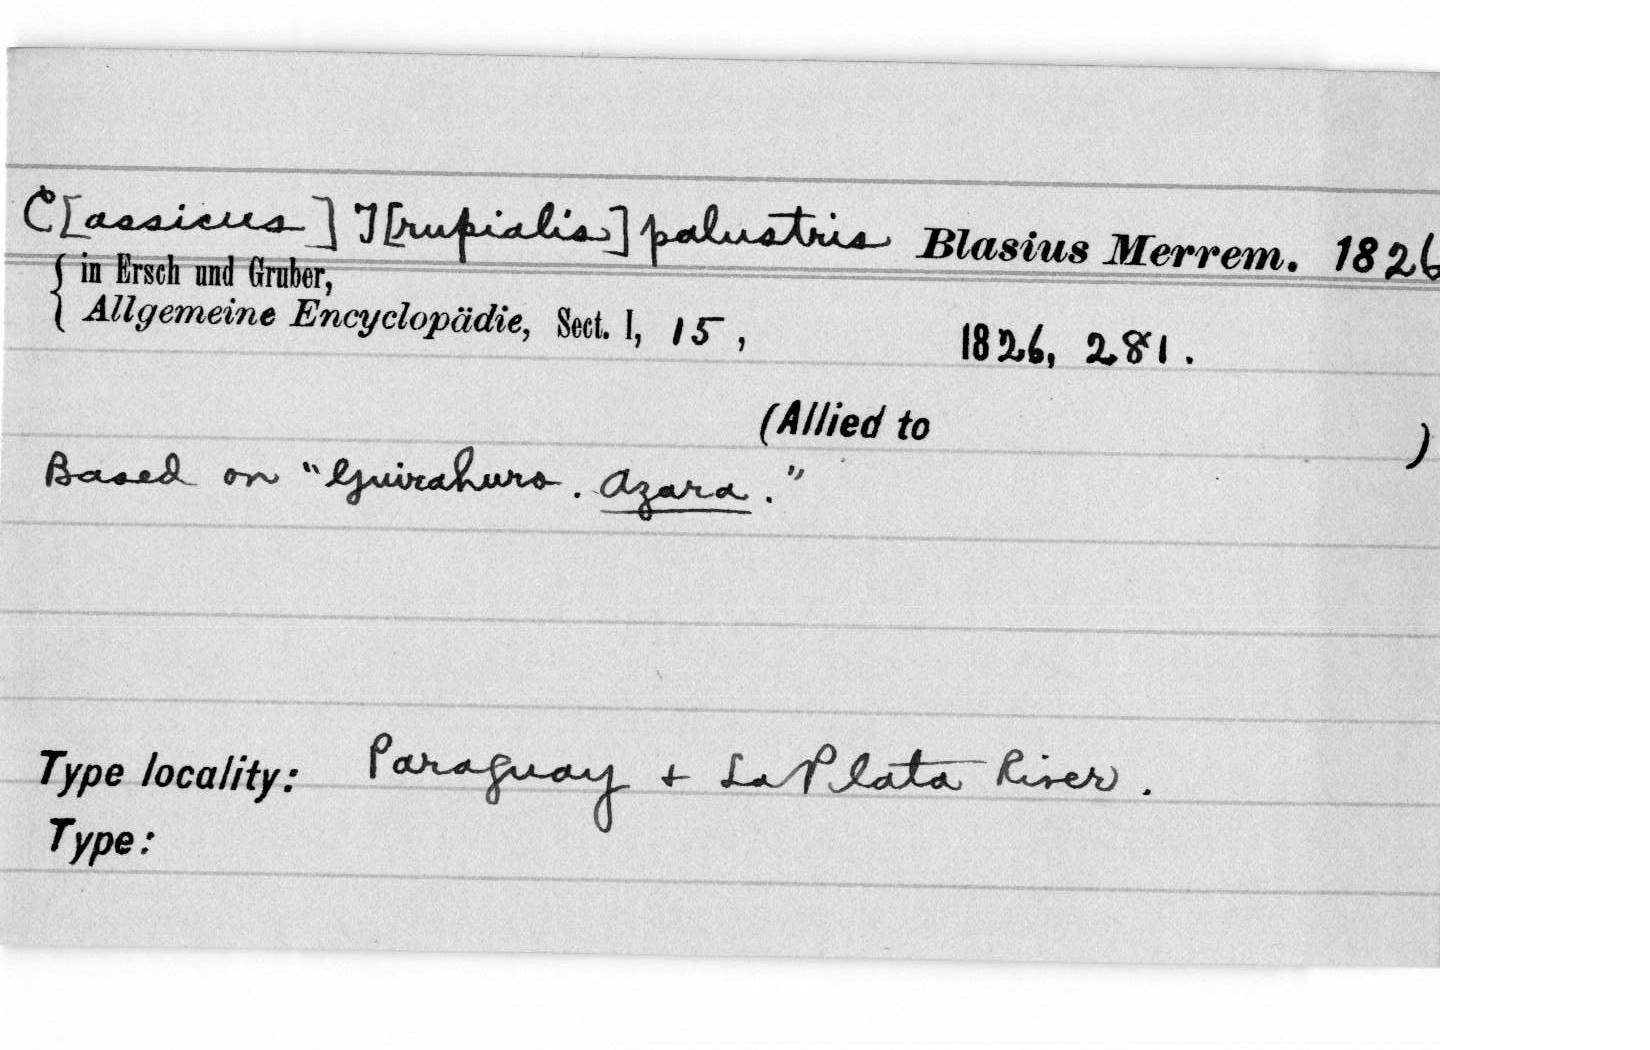 C[assicus] T[rupialis] palustris Blasius Merrem. 1826
in Ersch und Gruber,
Allgemeine Encyclopädie, Sect. I, 15, 1826, 281.
(Allied to )
Based on "Guirahuro. Azara."
Type locality: Paraguay + La Plata River.
Type: